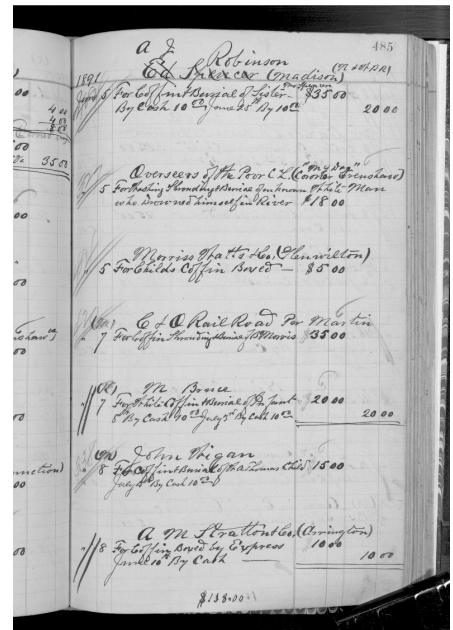 485
A J Robinson
Ed Spencer (Madison) (N & W RR)
1891
June 5 For Coffin & Burial of Sister $35 00
By Cash 10 00 June 25th By 10 00 20 00
Overseers of the Poor C.L. (Coroner Crenshaw)
5 For Washing Shrouding & Burial of unknown White Man
who Drowned himself in River $18 00
Morriss Watts & Co, (Glenwilton)
5 For Childs Coffin Boxed — $5 00
C & O Rail Road Per Martin
7 For Coffin Shrouding & Burial of Morris $35 00
M Bruce
7 For White Coffin & Burial of Infant 20 00
8th By Cash 10 00 July 3rd By Cash 10 00 20 00
John Wigan
8 For Coffin & Burial of Thomas Child 15 00
July 4th By Cash 10 00
A M Stratton & Co, (Arrington)
8 For Coffin Boxed by Express 10 00
June 10th By Cash — 10 00
$138.00